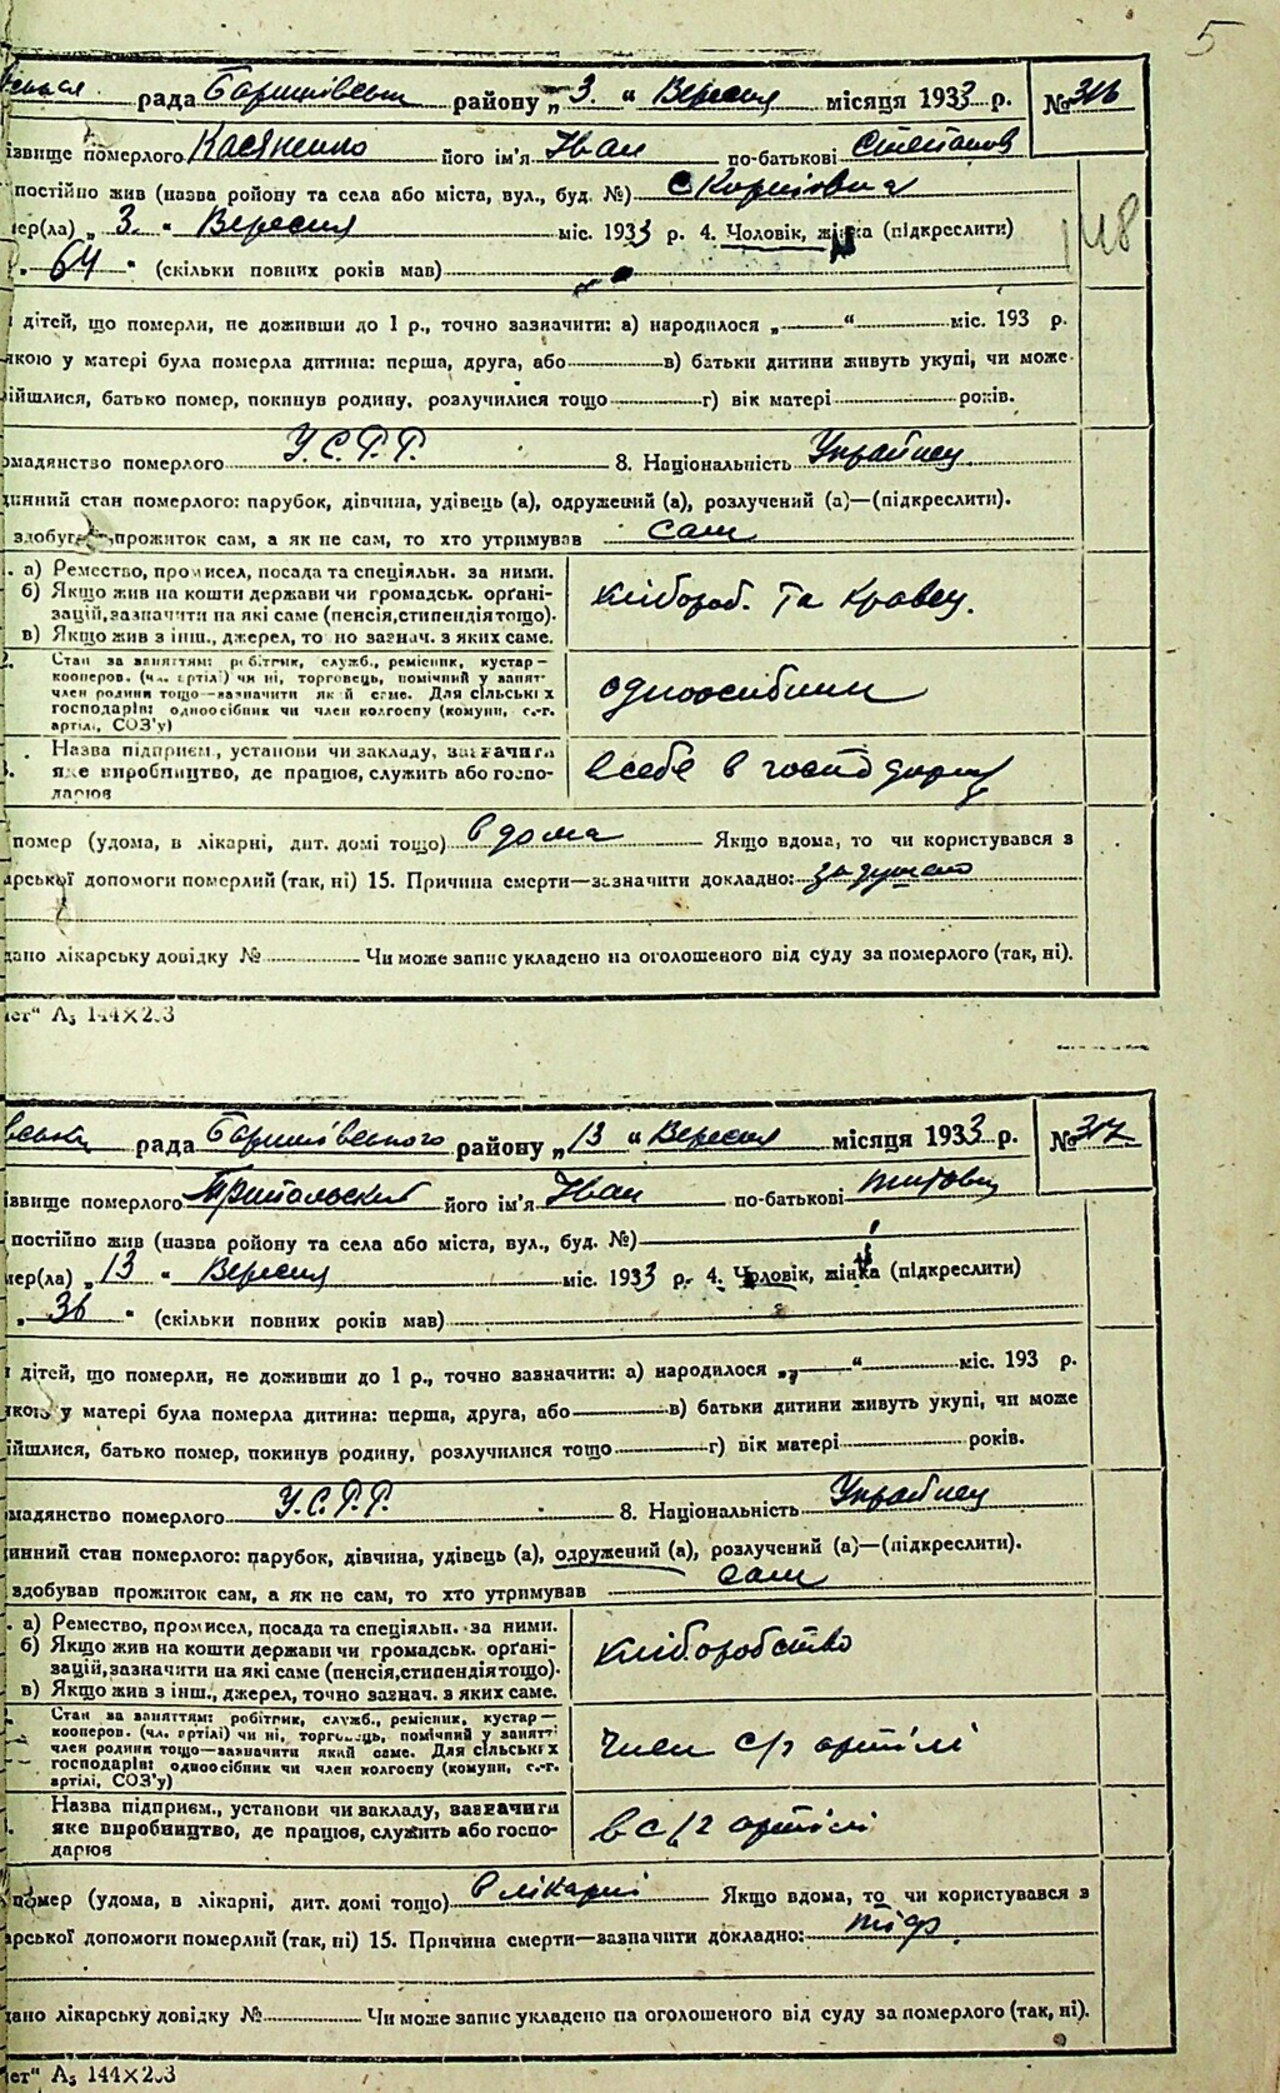 5
рада Баришівськ району „ 3. “ Вересня місяця 1933 р. № 316
ізвище померлого Касяненко його ім'я Іван по-батькові Степанов
постійно жив (назва ройону та села або міста, вул., буд. №) с Корніовка
мер(ла) „ 3. “ Вересня міс. 1933 р. 4. Чоловік, жінка (підкреслити)
148
„ 64 “ (скільки повних років мав)
дітей, що померли, не доживши до 1 р., точно зазначити: а) народилося „ “ міс. 193 р.
якою у матері була померла дитина: перша, друга, або в) батьки дитини живуть укупі, чи може
ійшлися, батько помер, покинув родину, розлучилися тощо г) вік матері років.
омадянство померлого У.С.Р.Р. 8. Національність Українец
динний стан померлого: парубок, дівчина, удівець (а), одружений (а), розлучений (а)—(підкреслити).
здобув прожиток сам, а як не сам, то хто утримував сам
а) Ремество, промисел, посада та спеціяльн. за ними.
б) Якщо жив на кошти держави чи громадськ. орґані-
зацій, зазначити на які саме (пенсія, стипендія тощо).
в) Якщо жив з інш., джерел, то но зазнач. з яких саме.
хлібороб. та кравец.
Стан за заняттям: робітник, служб., ремісник, кустар—
кооперов. (чл. артілі) чи ні, торговець, помічний у занят-
член родини тощо—зазначити який саме. Для сільських
господарів: одноосібник чи член колгоспу (комуни, с.-г.
артілі, СОЗ'у)
одноосібник
Назва підприєм., установи чи закладу, зазначити
яке виробництво, де працюв, служить або госпо-
дарюв
в себе в господарц
помер (удома, в лікарні, дит. домі тощо) в дома Якщо вдома, то чи користувався з
арської допомоги померлий (так, ні) 15. Причина смерти—зазначити докладно:
дано лікарську довідку № Чи може запис укладено на оголошеного від суду за померлого (так, ні).
ет“ А₅ 144×203
вська рада Баришівського району „ 13 “ Вересня місяця 1933 р. № 317
ізвище померлого Трипольский його ім'я Іван по-батькові Титович
постійно жив (назва ройону та села або міста, вул., буд. №)
мер(ла) „ 13 “ Вересня міс. 1933 р. 4. Чоловік, жінка (підкреслити)
„ 36 “ (скільки повних років мав)
дітей, що померли, не доживши до 1 р., точно зазначити: а) народилося „ “ міс. 193 р.
якою у матері була померла дитина: перша, друга, або в) батьки дитини живуть укупі, чи може
ійшлися, батько помер, покинув родину, розлучилися тощо г) вік матері років.
омадянство померлого У.С.Р.Р. 8. Національність Українец
динний стан померлого: парубок, дівчина, удівець (а), одружений (а), розлучений (а)—(підкреслити).
здобував прожиток сам, а як не сам, то хто утримував сам
а) Ремество, промисел, посада та спеціяльн. за ними.
б) Якщо жив на кошти держави чи громадськ. орґані-
зацій, зазначити на які саме (пенсія, стипендія тощо).
в) Якщо жив з інш., джерел, точно зазнач. з яких саме.
хліборобство
Стан за заняттям: робітник, служб., ремісник, кустар—
кооперов. (чл. артілі) чи ні, торговець, помічний у занятті
член родини тощо—зазначити який саме. Для сільських
господарів: одноосібник чи член колгоспу (комуни, с.-г.
артілі, СОЗ'у)
член с/г артілі
Назва підприєм., установи чи закладу, зазначити
яке виробництво, де працюв, служить або госпо-
дарюв
в с/г артілі
помер (удома, в лікарні, дит. домі тощо) в лікарні Якщо вдома, то чи користувався з
арської допомоги померлий (так, ні) 15. Причина смерти—зазначити докладно: тіф.
дано лікарську довідку № Чи може запис укладено на оголошеного від суду за померлого (так, ні).
ет“ А₅ 144×203